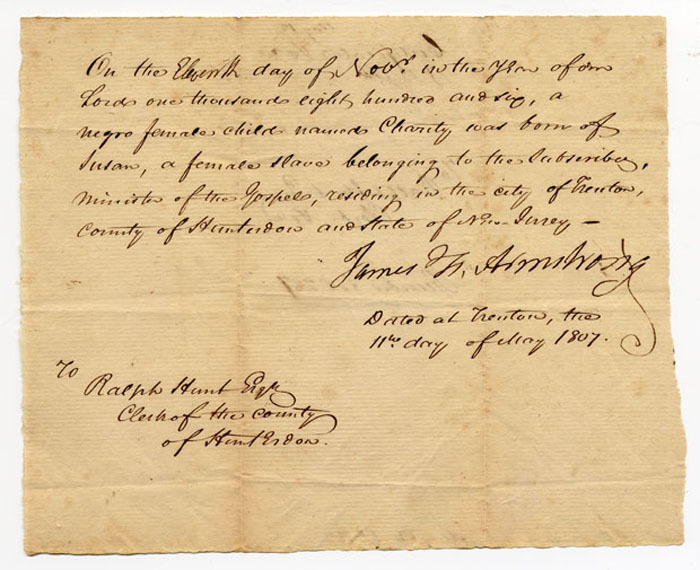 On the Eleventh day of Novr. in the Year of our
Lord one thousand eight hundred and six, a
negro female child named Charity was born of
Susan, a female slave belonging to the Subscriber,
Minister of the Gospel, residing in the city of Trenton,
County of Hunterdon and state of New Jersey –
James F. Armstrong
Dated at Trenton, the
11th day of May 1807.
To
Ralph Hunt Esqr
Clerk of the county
of Hunterdon.